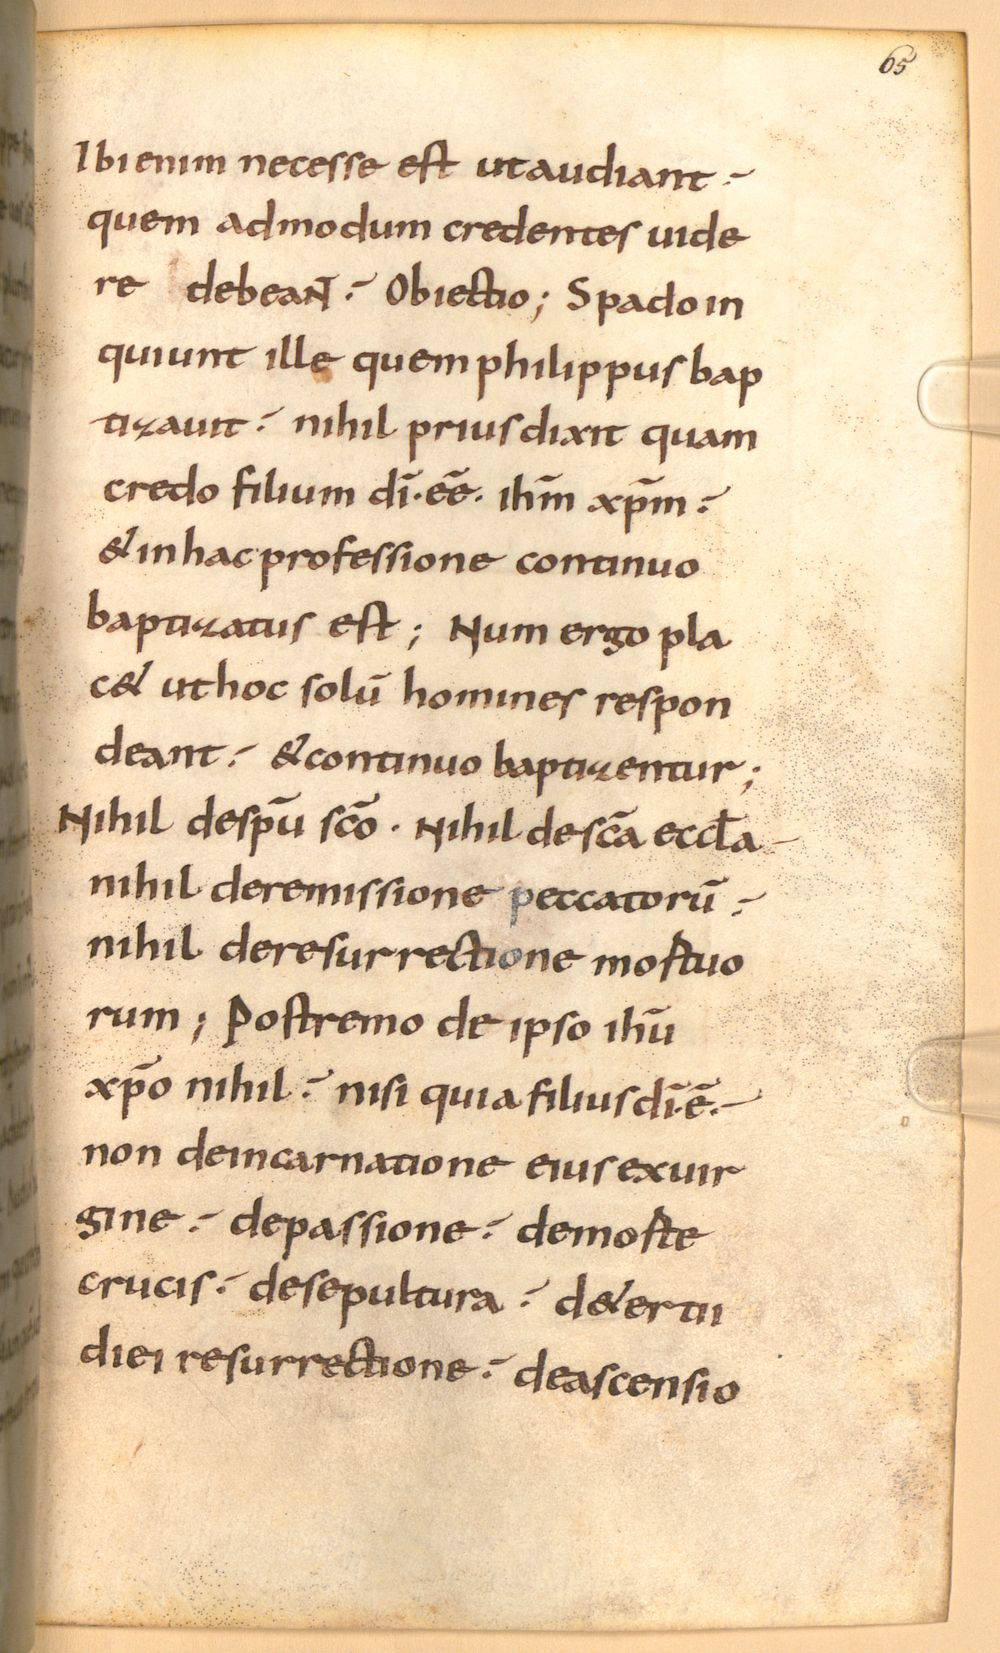 65
Ibi enim necesse est ut audiant :
quem admodum credentes uide
re debeant : Obiectio ; Spado in
quiunt ille quem philippus bap
tizauit : nihil prius dixit quam
credo filium dī · eē · ihm̄ xpm̄ :
& in hac professione continuo
baptizatus est ; Num ergo pla
c& ut hoc solū homines respon
deant : & continuo baptizentur ;
Nihil de spū scō · Nihil de scā eccla
nihil de remissione peccatorū :
nihil de resurrectione mortuo
rum ; Postremo de ipso ihū
xpō nihil : nisi quia filius dī · ē ·
non de incarnatione eius ex uir
gine : de passione : de morte
crucis : de sepultura : d&ertii
diei resurrectione : de ascensio